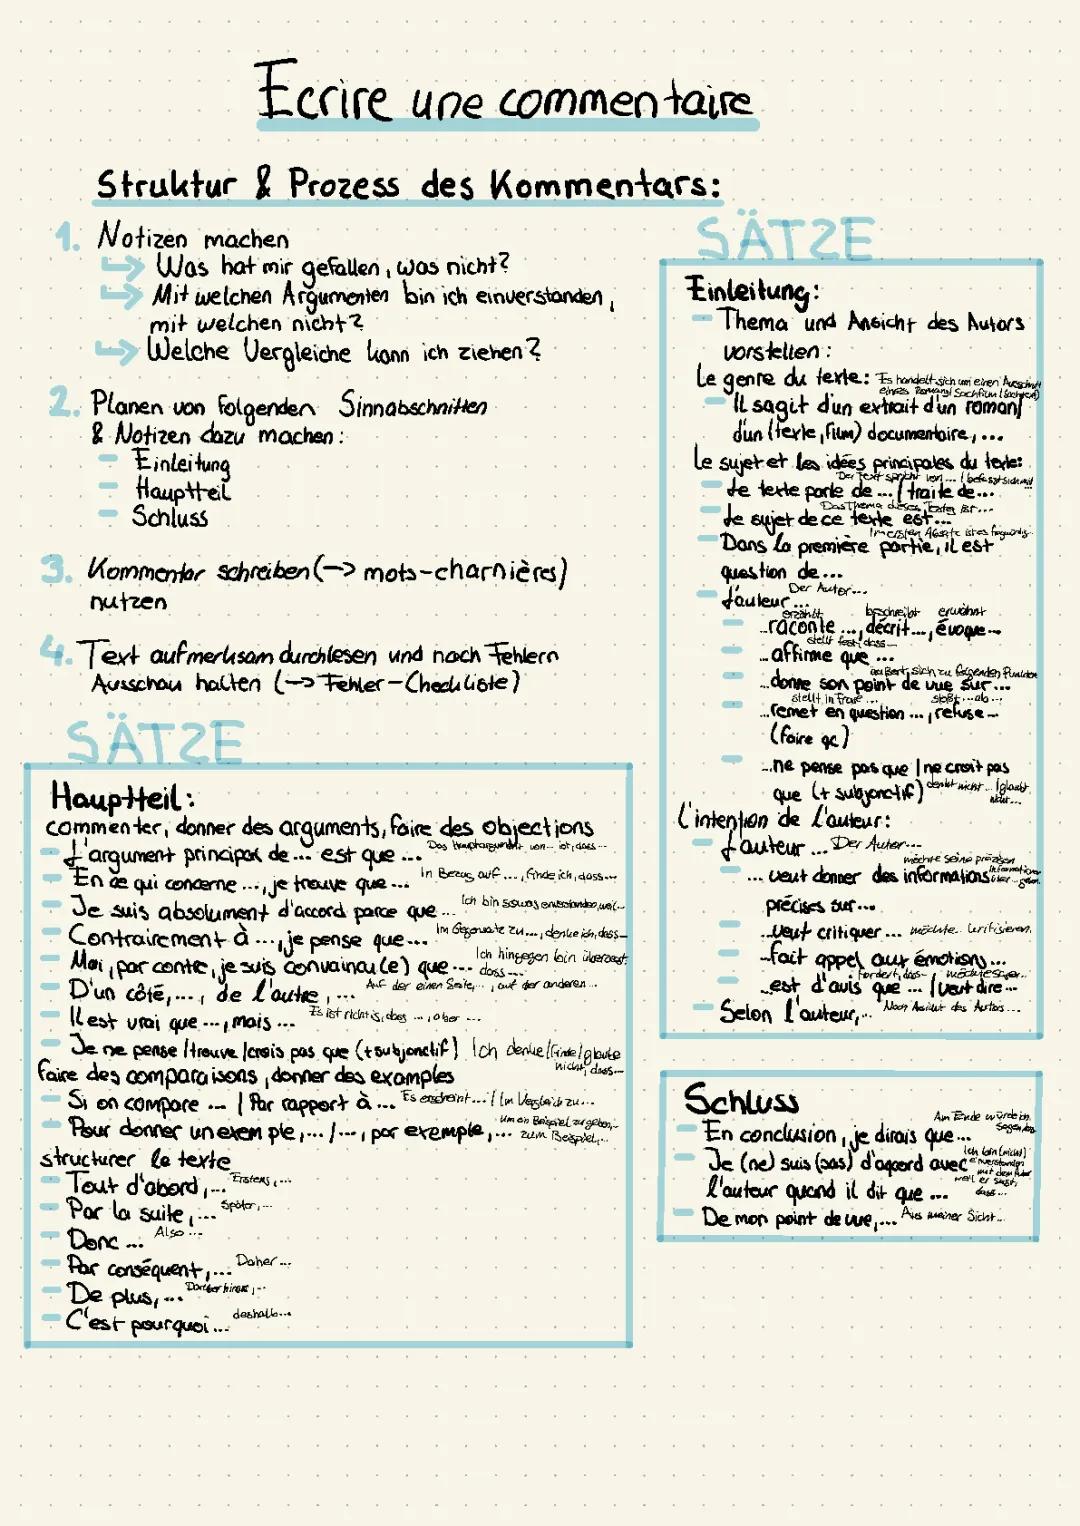 Ecrire une commentaire
Struktur & Prozess des Kommentars:
1. Notizen machen
Was hat mir gefallen, was nicht?
Mit welchen Argumenten bin ich einverstanden,
mit welchen nicht?
Welche Vergleiche kann ich ziehen?
2. Planen von folgenden Sinnabschnitten
& Notizen dazu machen:
- Einleitung
- Hauptteil
- Schluss
3. Kommentar schreiben (-> mots-charnières)
nutzen
4. Text aufmerksam durchlesen und nach Fehlern
Ausschau halten (-> Fehler-Checkliste)
SÄTZE
Einleitung:
- Thema und Ansicht des Autors
vorstellen:
Le genre du texte: Es handelt sich um einen Ausschnitt
eines Romans/Sachfilm (Sachtext)
- Il sagit d'un extrait d'un roman/
d'un (texte, film) documentaire, ...
Le sujet et les idées principales du texte:
Der Text spricht von ... / befasst sich mit
- Le texte parle de ... / traite de...
Das Thema dieses Textes ist ...
- Le sujet de ce texte est...
Im ersten Absatz ist es fragwürdig...
- Dans la première partie, il est
question de...
Der Autor...
- L'auteur ...
erzählt beschreibt erwähnt
- ...raconte ..., décrit..., évoque...
stellt fest, dass...
- ...affirme que ...
äußert sich zu folgenden Punkten
- ...donne son point de vue sur...
stellt in Frage ... ...ab...
- ...remet en question ..., refuse...
(faire qc)
- ...ne pense pas que / ne croit pas
que (+ subjonctif) denkt nicht... / glaubt
nicht...
L'intention de l'auteur:
- L'auteur ... Der Autor...
möchte seine präzisen
Informationen
- ... veut donner des informations über ... geben
précises sur...
- ...veut critiquer ... möchte kritisieren.
- ...fait appel aux émotions...
fordert, dass...
- ...est d'avis que ... / veut dire...
- Selon l'auteur,... Nach Ansicht des Autors...
SÄTZE
Hauptteil:
commenter, donner des arguments, faire des objections
- L'argument principal de... est que ... Das Hauptargument von... ist, dass...
- En ce qui concerne ..., je trouve que... In Bezug auf ..., finde ich, dass...
- Je suis absolument d'accord parce que ... Ich bin einverstanden, weil...
- Contrairement à ..., je pense que... Im Gegensatz zu..., denke ich, dass...
- Moi, par contre, je suis convaincu(e) que ... Ich hingegen bin überzeugt,
dass...
- D'un côté, ..., de l'autre, ... Auf der einen Seite,..., auf der anderen...
- Il est vrai que ..., mais ... Es ist richtig, dass ..., aber ...
- Je ne pense / trouve / crois pas que (+subjonctif) Ich denke/finde/glaube
nicht, dass...
faire des comparaisons, donner des examples
- Si on compare ... / Par rapport à ... Es erscheint.../Im Vergleich zu...
- Pour donner un exemple, ... / ..., par exemple, ... um ein Beispiel zu geben,...
zum Beispiel,...
structurer le texte
- Tout d'abord, ... Erstens, ...
- Par la suite, ... Später, ...
- Donc ... Also ...
- Par conséquent, ... Daher ...
- De plus, ... Darüber hinaus, ...
- C'est pourquoi ... deshalb...
Schluss
Am Ende würde ich
sagen, dass
- En conclusion, je dirais que ...
Ich bin (nicht)
- Je (ne) suis (pas) d'accord avec einverstanden
mit dem Autor
l'auteur quand il dit que ... weil er sagt,
dass...
- De mon point de vue, ... Aus meiner Sicht...